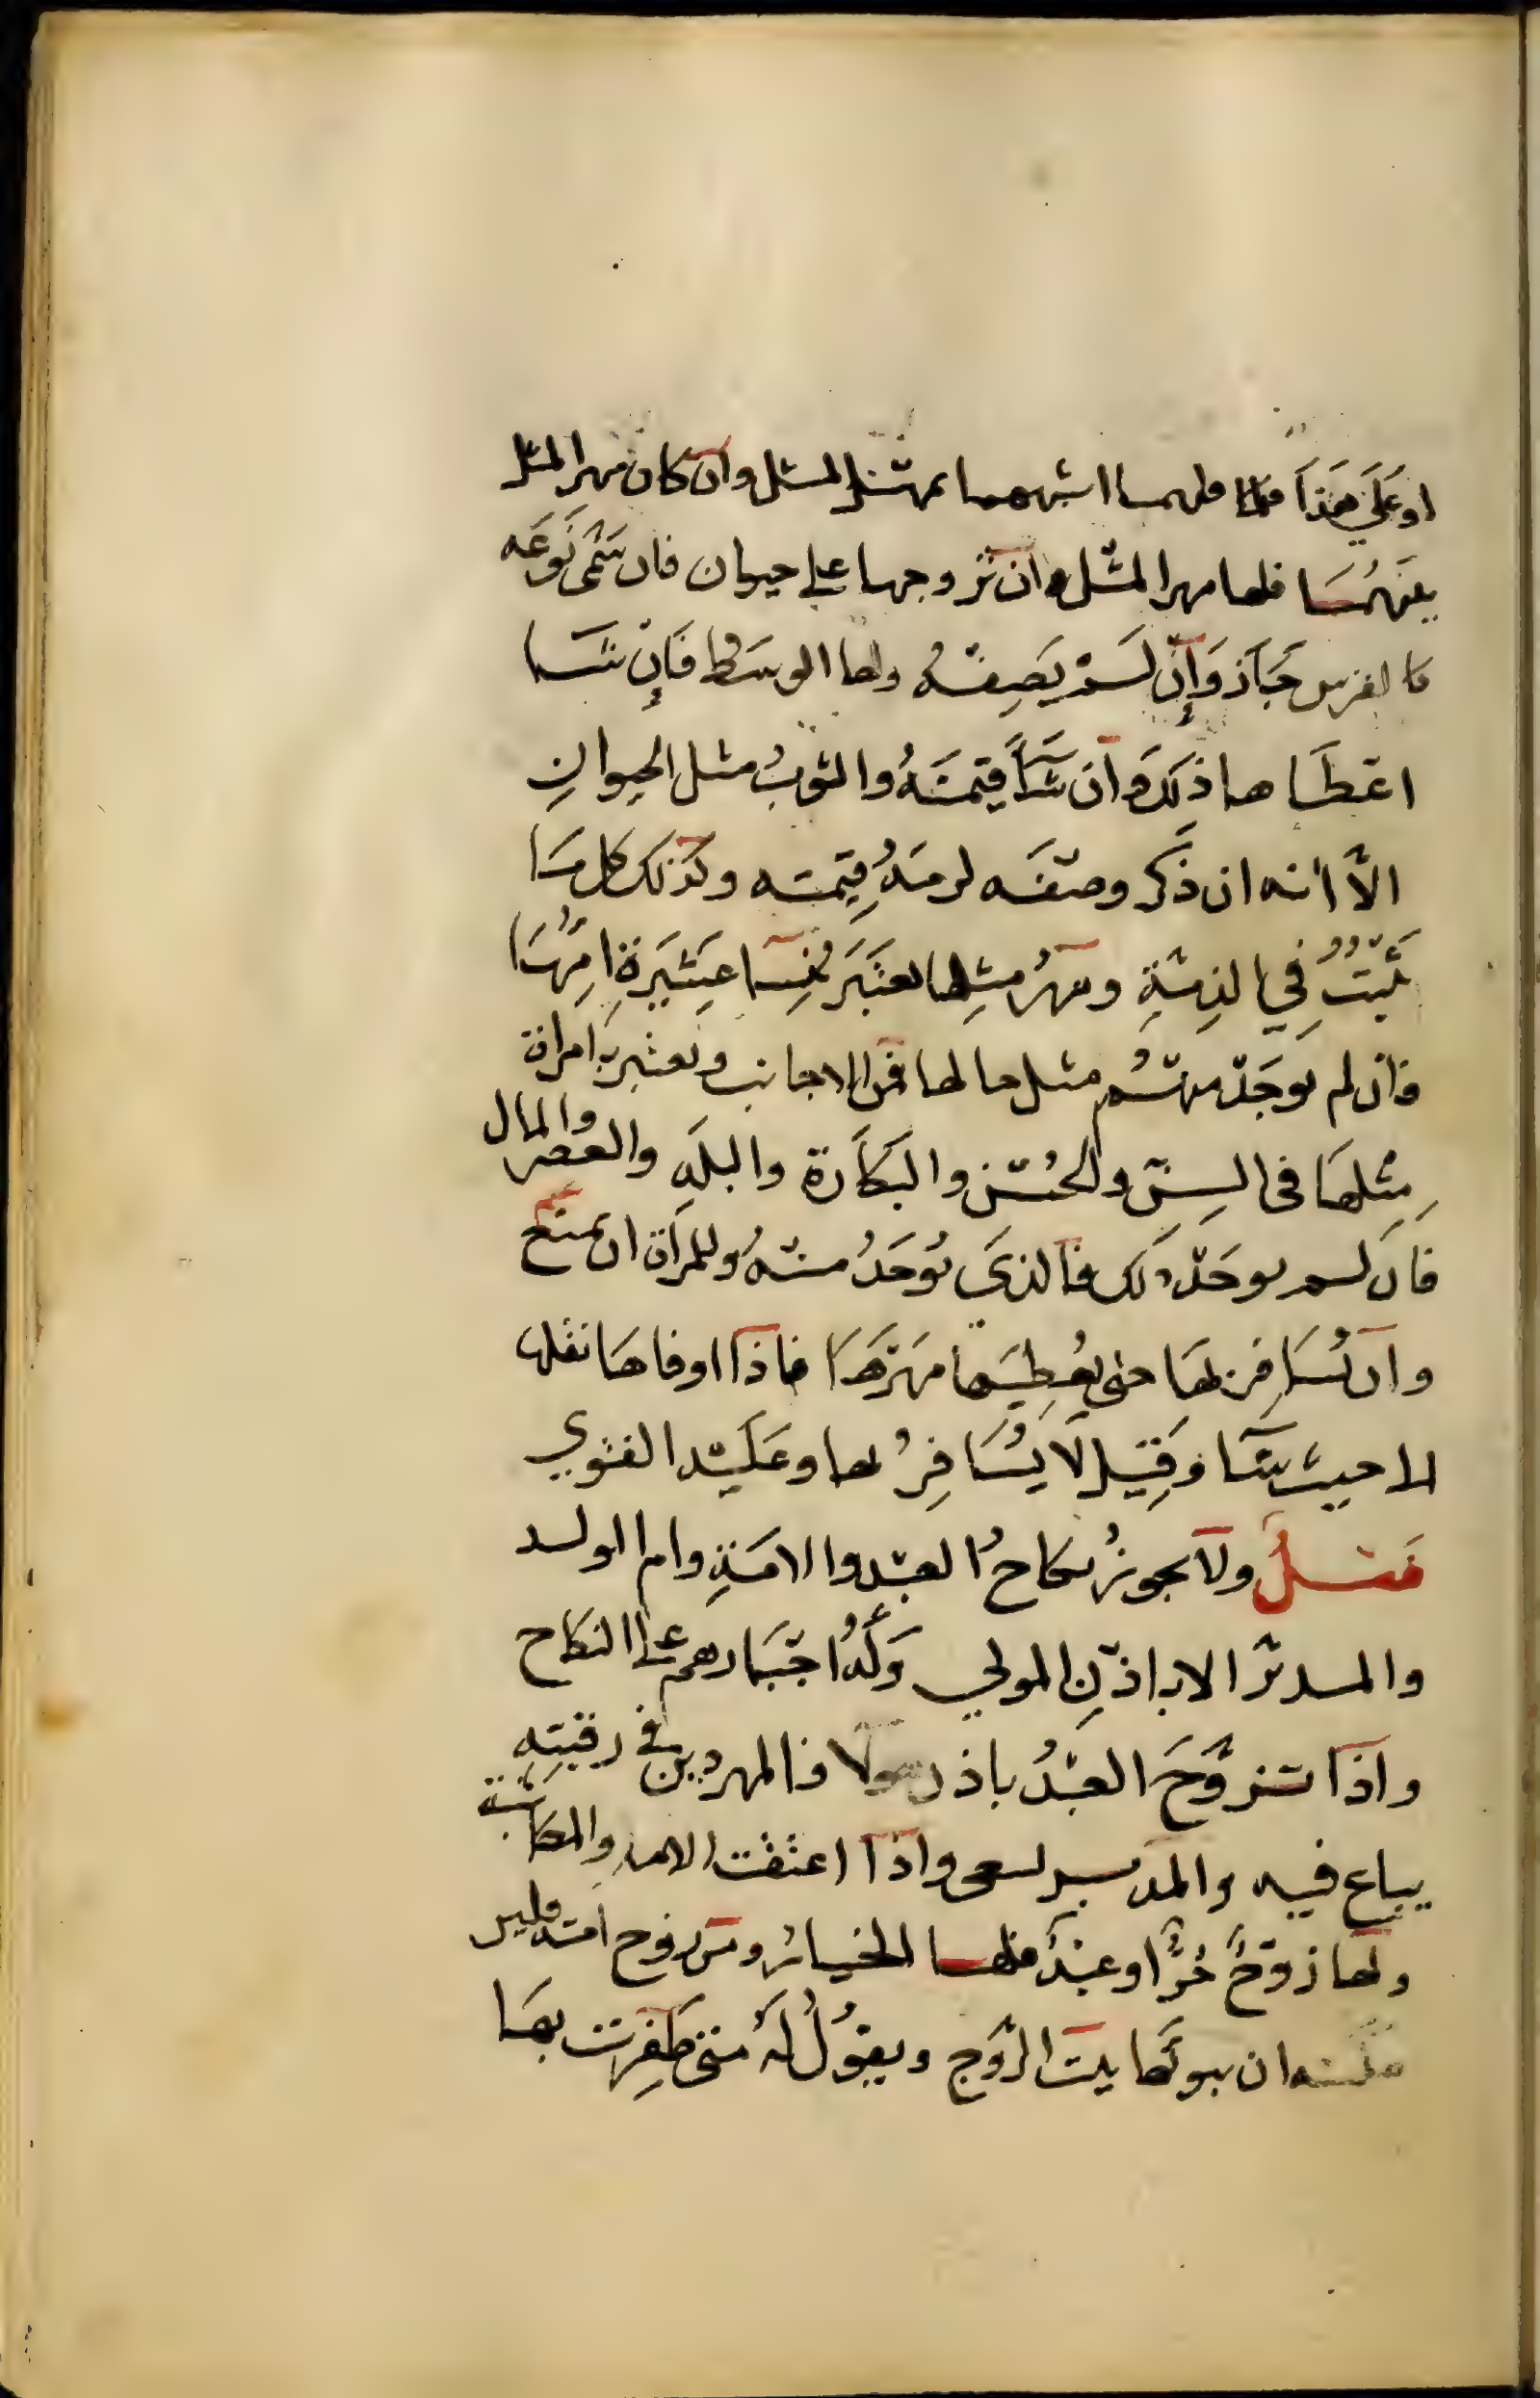 او على هذا فلها اشبههما بمهر المثل وان كان مهر المثل
بينهما فلها مهر المثل وان تزوجها على حيوان فان سمى نوعه
كالفرس جاز وإن لم يصفه ولها الوسط فإن شا
اعطاها ذلك وان شا قيمته والثوب مثل الحيوان
الا انه ان ذكر وصفه لزمه قيمته وكذلك كل ما
يثبت في الذمة ومهر مثلها يعتبر بنسا عشيرة ابيها
فان لم يوجد منهم مثل حالها فمن الاجانب ويعتبر بامراة
مثلها في السن والحسن والبكارة والبلد والعصر والمال
فان لم يوجد ذلك فالذي يوجد منه وللمراة ان تمنع
وان يسافر بها حتى يعطيها مهرها فاذا اوفاها نقلها
الى حيث شا وقيل لا يسافر بها وعليه الفتوى
فصل ولا يجوز نكاح العبد والامة وام الولد
والمدبر الا باذن المولى وله اجبارهم على النكاح
واذا تزوج العبد باذن مولاه فالمهر دين في رقبته
يباع فيه والمدبر يسعى واذا اعتقت الامة والمكاتبة
ولها زوج حر او عبد فلها الخيار ومن زوج امته فليس
عليه ان يبوئها بيت الزوج ويقول له متى ظفرت بها